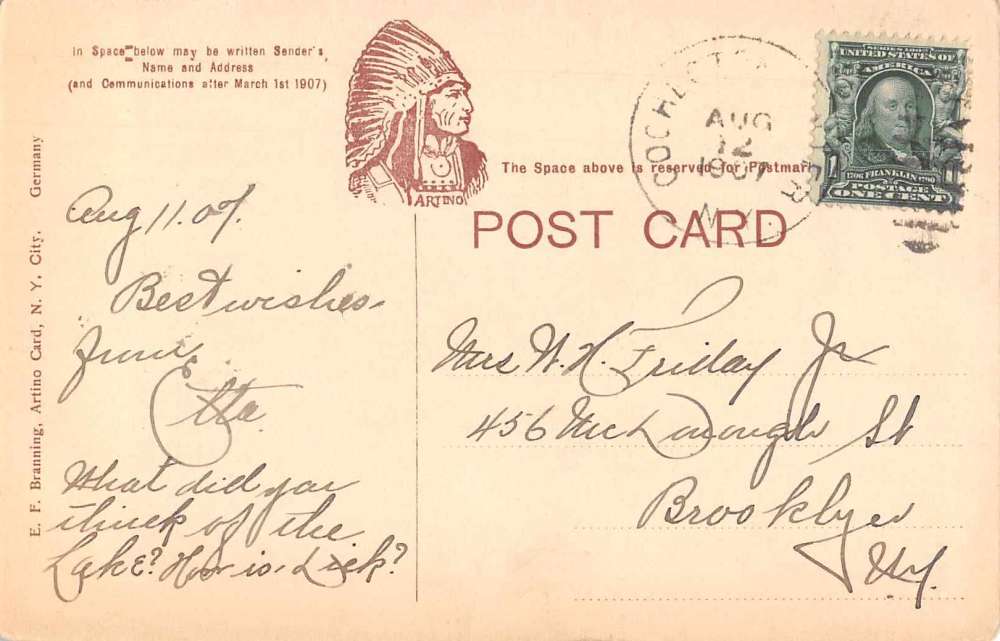 In Space below may be written Sender's
Name and Address
(and Communications after March 1st 1907)
E. F. Branning, Artino Card, N. Y. City. Germany
ARTINO
The Space above is reserved for Postmark
POST CARD
COCHECTON
AUG
12
1907
N.Y.
SERIES 1902
UNITED STATES OF
AMERICA
1706 FRANKLIN 1790
1
POSTAGE
ONE CENT
Aug 11. 07.
Best wishes
from
Etta.
What did you
think of the
Lake? How is Dick?
Mrs W. H. Friday Jr
456 McDonough St
Brooklyn
NY.